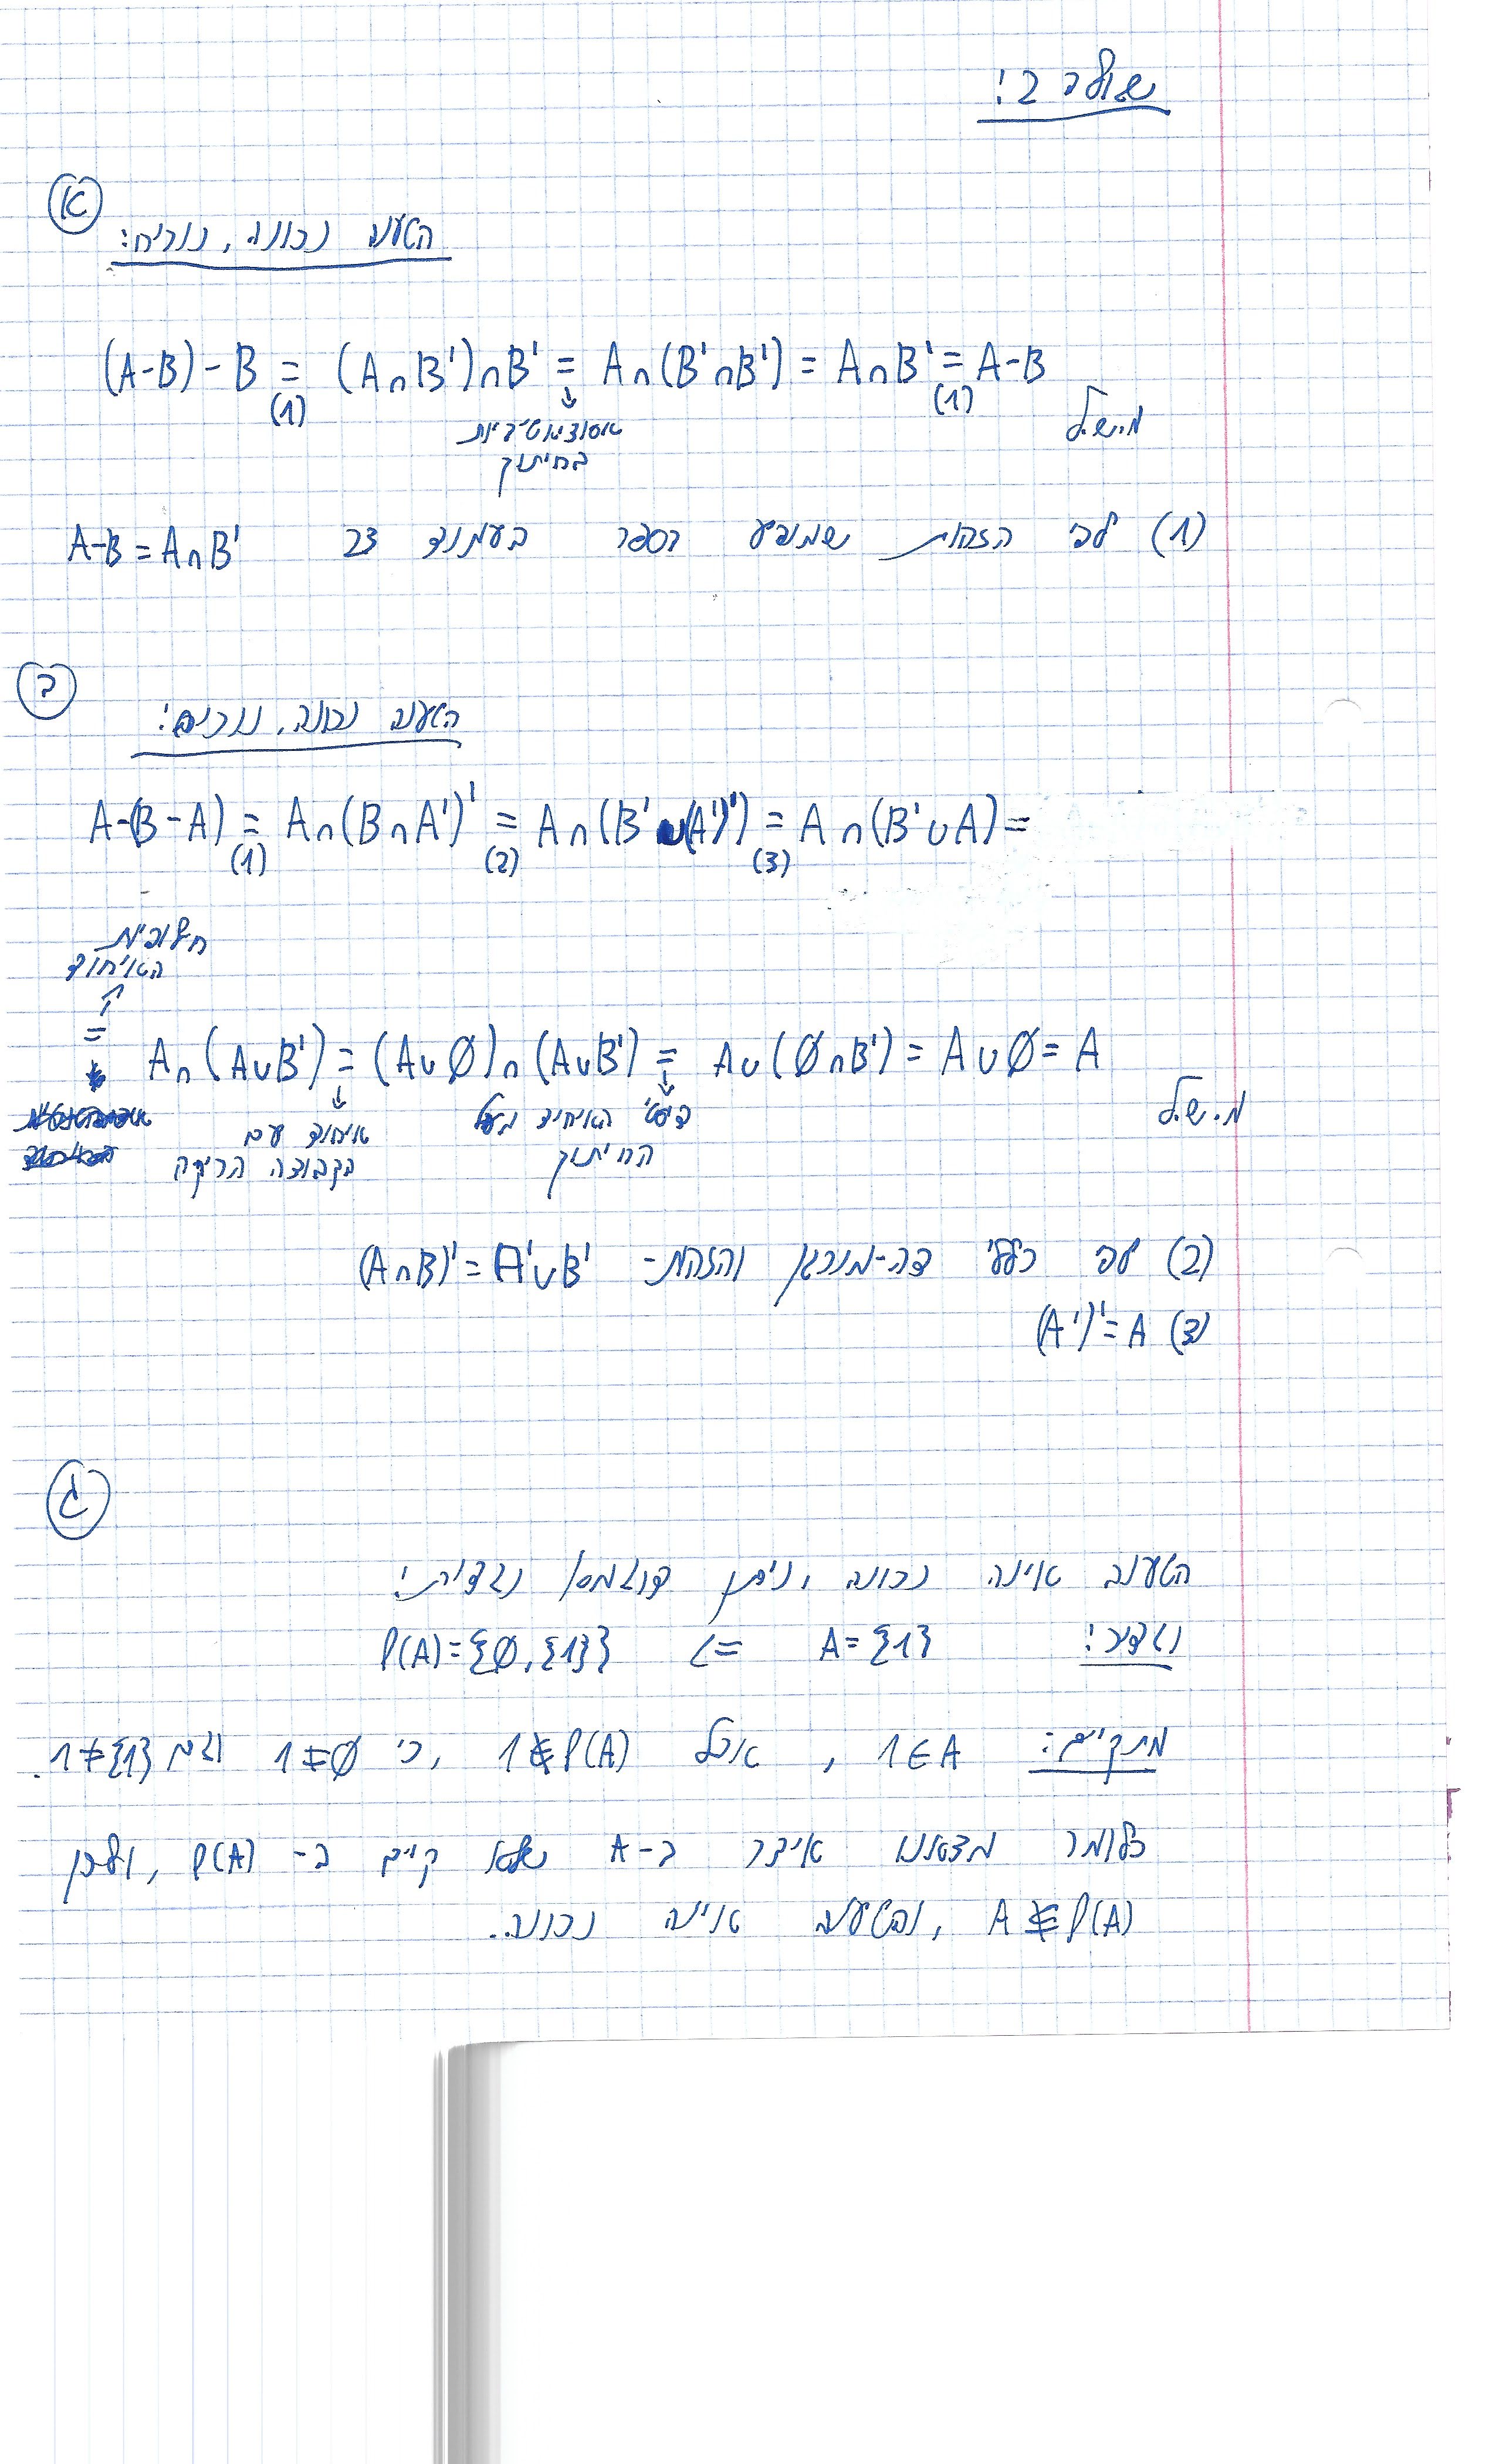 שאלה 2:
א
הטענה נכונה, נוכיח:
(A-B)-B = (A∩B')∩B' = A∩(B'∩B') = A∩B' = A-B
(1) (1)
אסוציאטיביות
בחיתוך
מ.ש.ל
(1) לפי הזהות שמופיע בספר בעמוד 23 A-B = A∩B'
ב
הטענה נכונה, נוכיח:
A-(B-A) = A∩(B∩A')' = A∩(B'∪(A')') = A∩(B'∪A) =
(1) (2) (3)
חילופיות
האיחוד
= A∩(A∪B') = (A∪∅)∩(A∪B') = A∪(∅∩B') = A∪∅ = A
איחוד עם
הקבוצה הריקה
האיחוד מעל
החיתוך
מ.ש.ל
(2) לפי כללי דה-מורגן והזהות- (A∩B)' = A'∪B'
(3) (A')' = A
ג
הטענה אינה נכונה, ניתן דוגמא נגדית:
נגדיר: A={1} => P(A)={∅,{1}}
מתקיים: 1∈A, אבל 1∉P(A), כי 1≠∅ וגם 1≠{1}.
כלומר מצאנו איבר ב-A שלא קיים ב- P(A), ולכן
A⊈P(A), והטענה אינה נכונה..